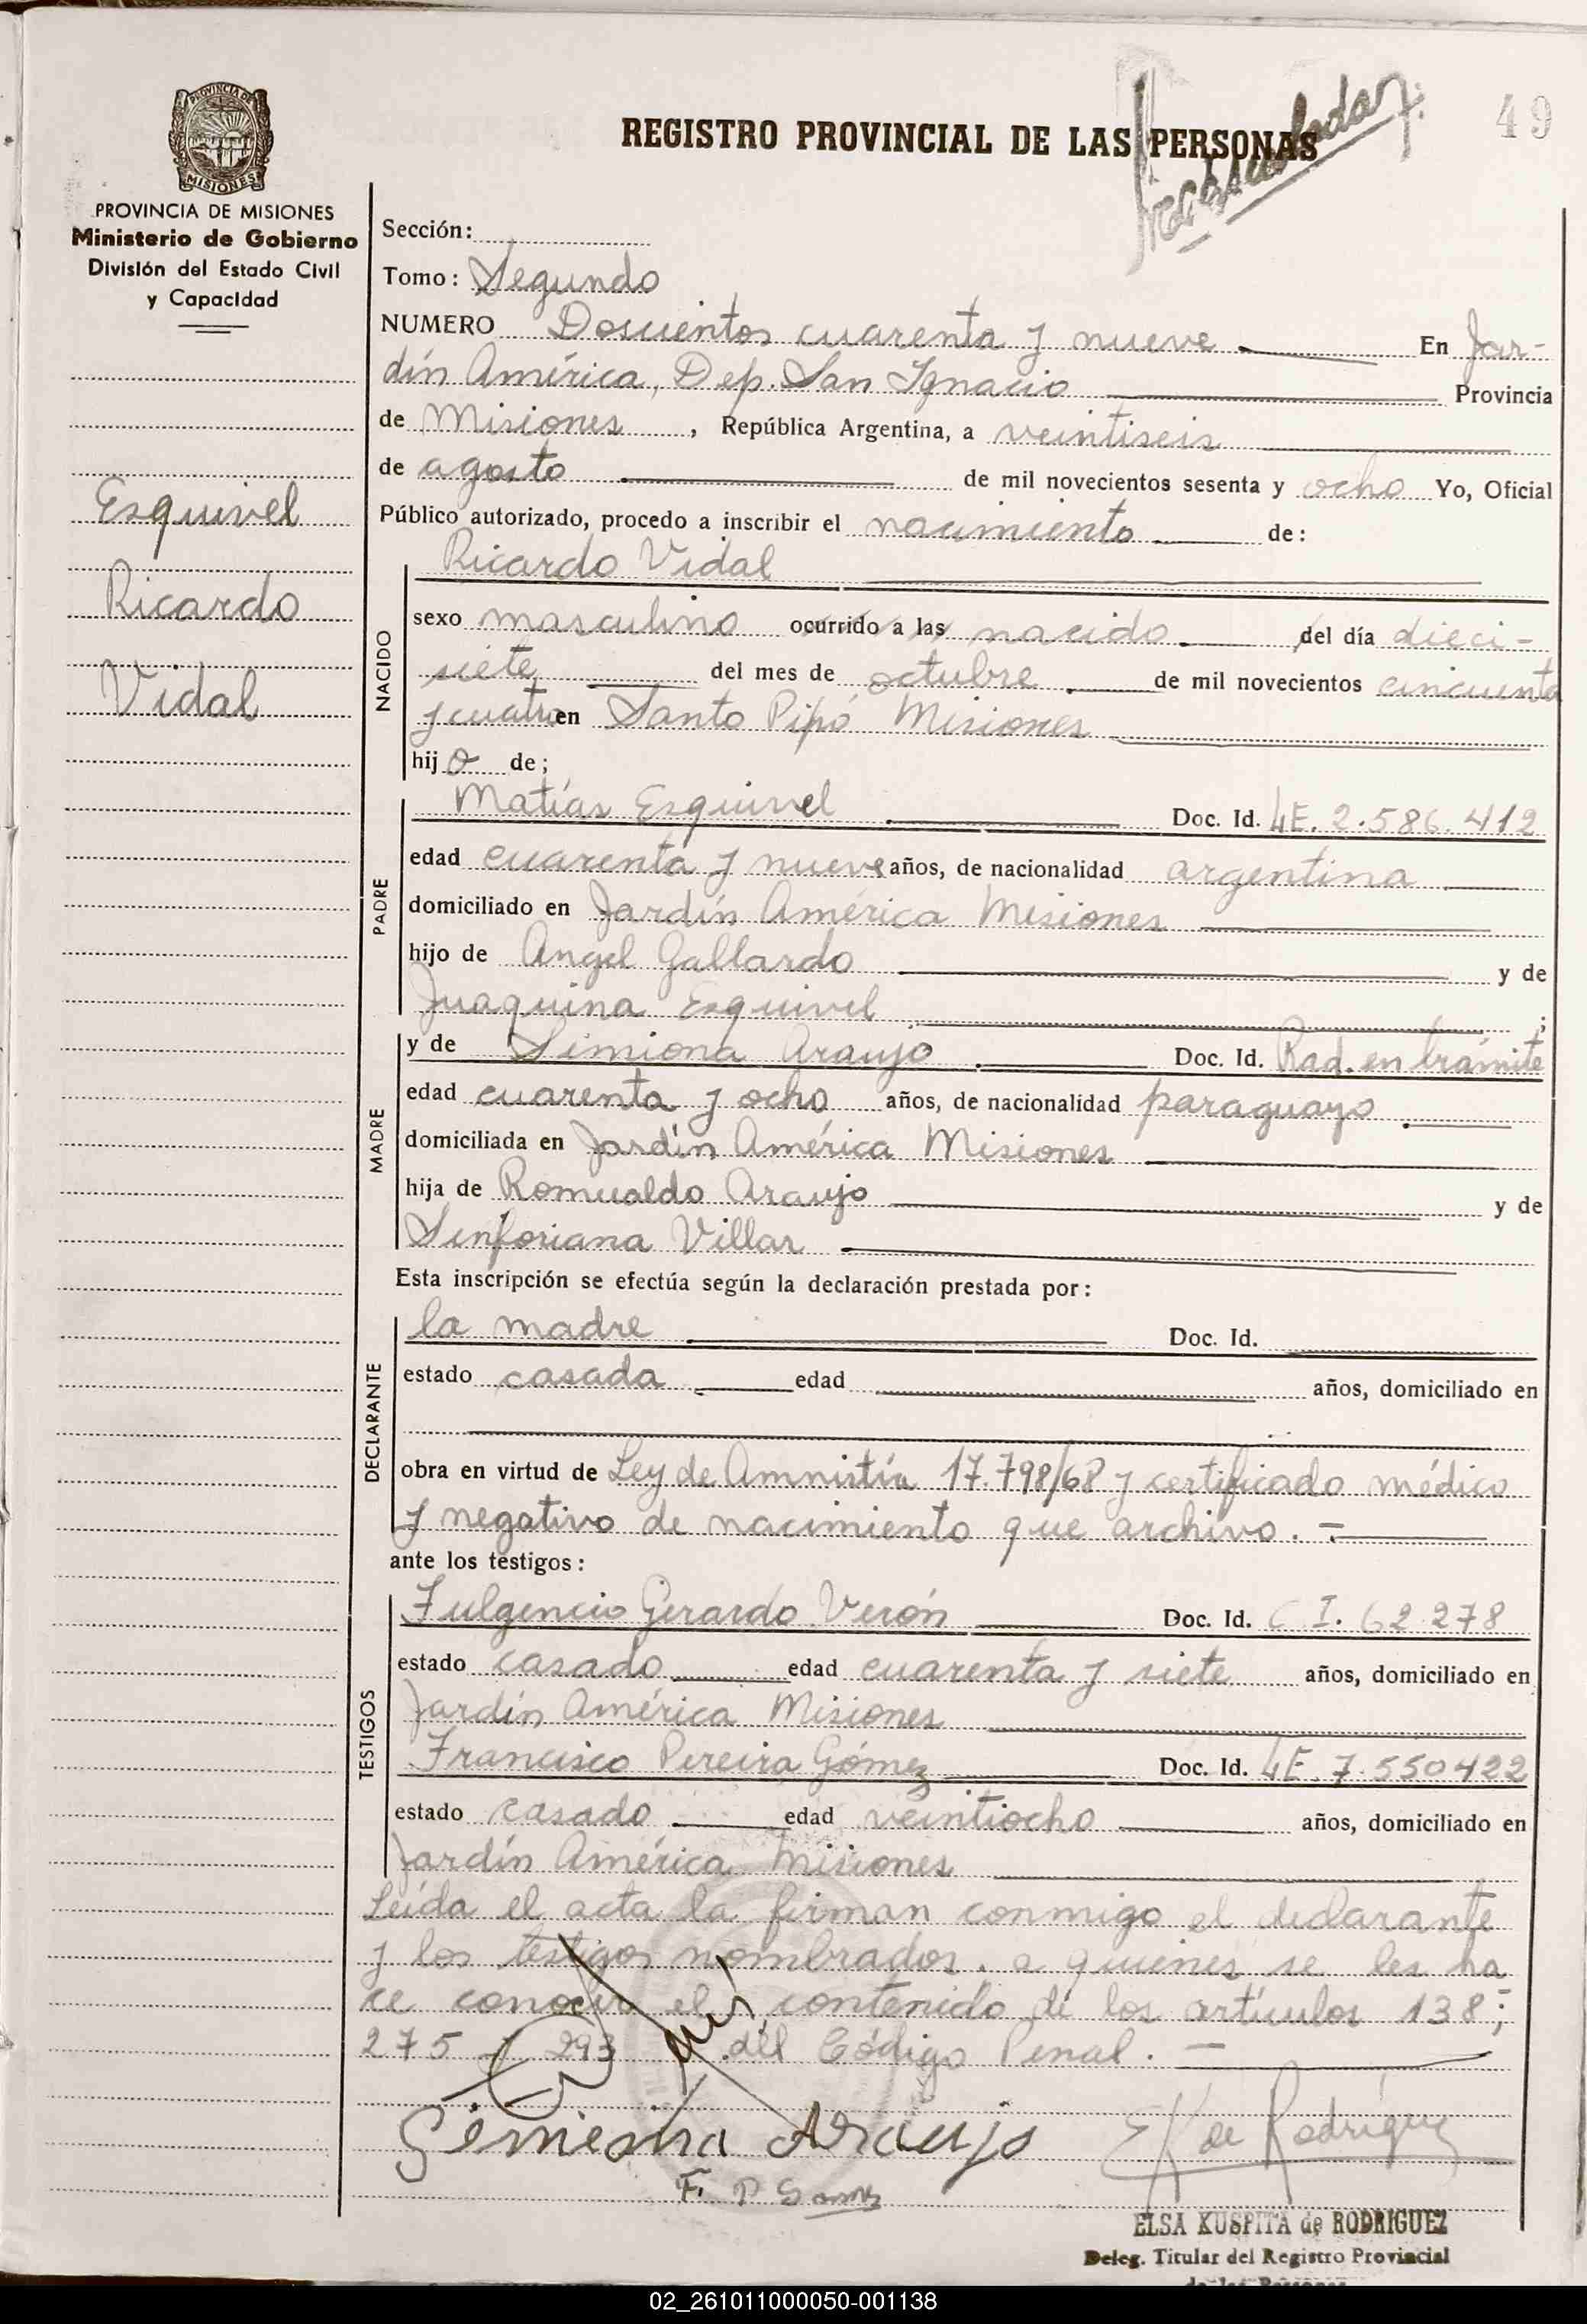 49
REGISTRO PROVINCIAL DE LAS PERSONAS
PROVINCIA DE
MISIONES
PROVINCIA DE MISIONES
Ministerio de Gobierno
División del Estado Civil
y Capacidad
Esquivel
Ricardo
Vidal
Sección:
Tomo: Segundo
NUMERO Doscientos cuarenta y nueve En Jar-
dín América, Dep. San Ignacio Provincia
de Misiones, República Argentina, a veintiseis
de agosto de mil novecientos sesenta y ocho Yo, Oficial
Público autorizado, procedo a inscribir el nacimiento de:
Ricardo Vidal
NACIDO
sexo masculino ocurrido a las nacido del día dieci-
siete del mes de octubre de mil novecientos cincuenta
y cuatro en Santo Pipó Misiones
hijo de;
PADRE
Matías Esquivel Doc. Id. LE. 2.586.412
edad cuarenta y nueve años, de nacionalidad argentina
domiciliado en Jardín América Misiones
hijo de Angel Gallardo y de
Juaquina Esquivel ;
MADRE
y de Simiona Araujo Doc. Id. Rad. en trámite
edad cuarenta y ocho años, de nacionalidad paraguayo
domiciliada en Jardín América Misiones
hija de Romualdo Araujo y de
Sinforiana Villar
Esta inscripción se efectúa según la declaración prestada por:
DECLARANTE
la madre Doc. Id.
estado casada edad años, domiciliado en
obra en virtud de Ley de Amnistía 17.798/68 y certificado médico
y negativo de nacimiento que archivo. -
ante los testigos:
TESTIGOS
Fulgencio Gerardo Verón Doc. Id. C.I. 62.278
estado casado edad cuarenta y siete años, domiciliado en
Jardín América Misiones
Francisco Pereira Gómez Doc. Id. LE. 7.550422
estado casado edad veintiocho años, domiciliado en
Jardín América Misiones
Leída el acta la firman conmigo el declarante
y los testigos nombrados, a quienes se les ha
ce conocer el contenido de los artículos 138;
275 y 293 del Código Penal. -
Simiona Araujo E K de Rodríguez
F. P Gomz
ELSA KUSPITA de RODRIGUEZ
Deleg. Titular del Registro Provincial
de las Personas
02_261011000050-001138